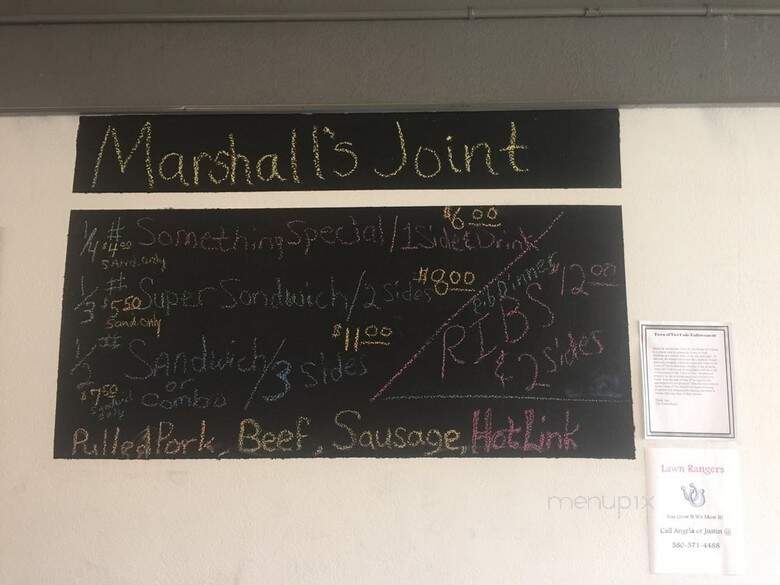 Marshall's Joint
1/4 # Something Special/1 Side & Drink $6.00
$4.00 Sand. only
1/3 # Super Sandwich/2 sides $8.00
$5.50 Sand only
1/2 # Sandwich or Combo/3 sides $11.00
$7.50 Sandwich only
Rib Dinner
RIBS $12.00
& 2 sides
Pulled Pork, Beef, Sausage, Hot Link
Lawn Rangers
You Grow It We Mow It!
Call Angela or Justin @
menupix